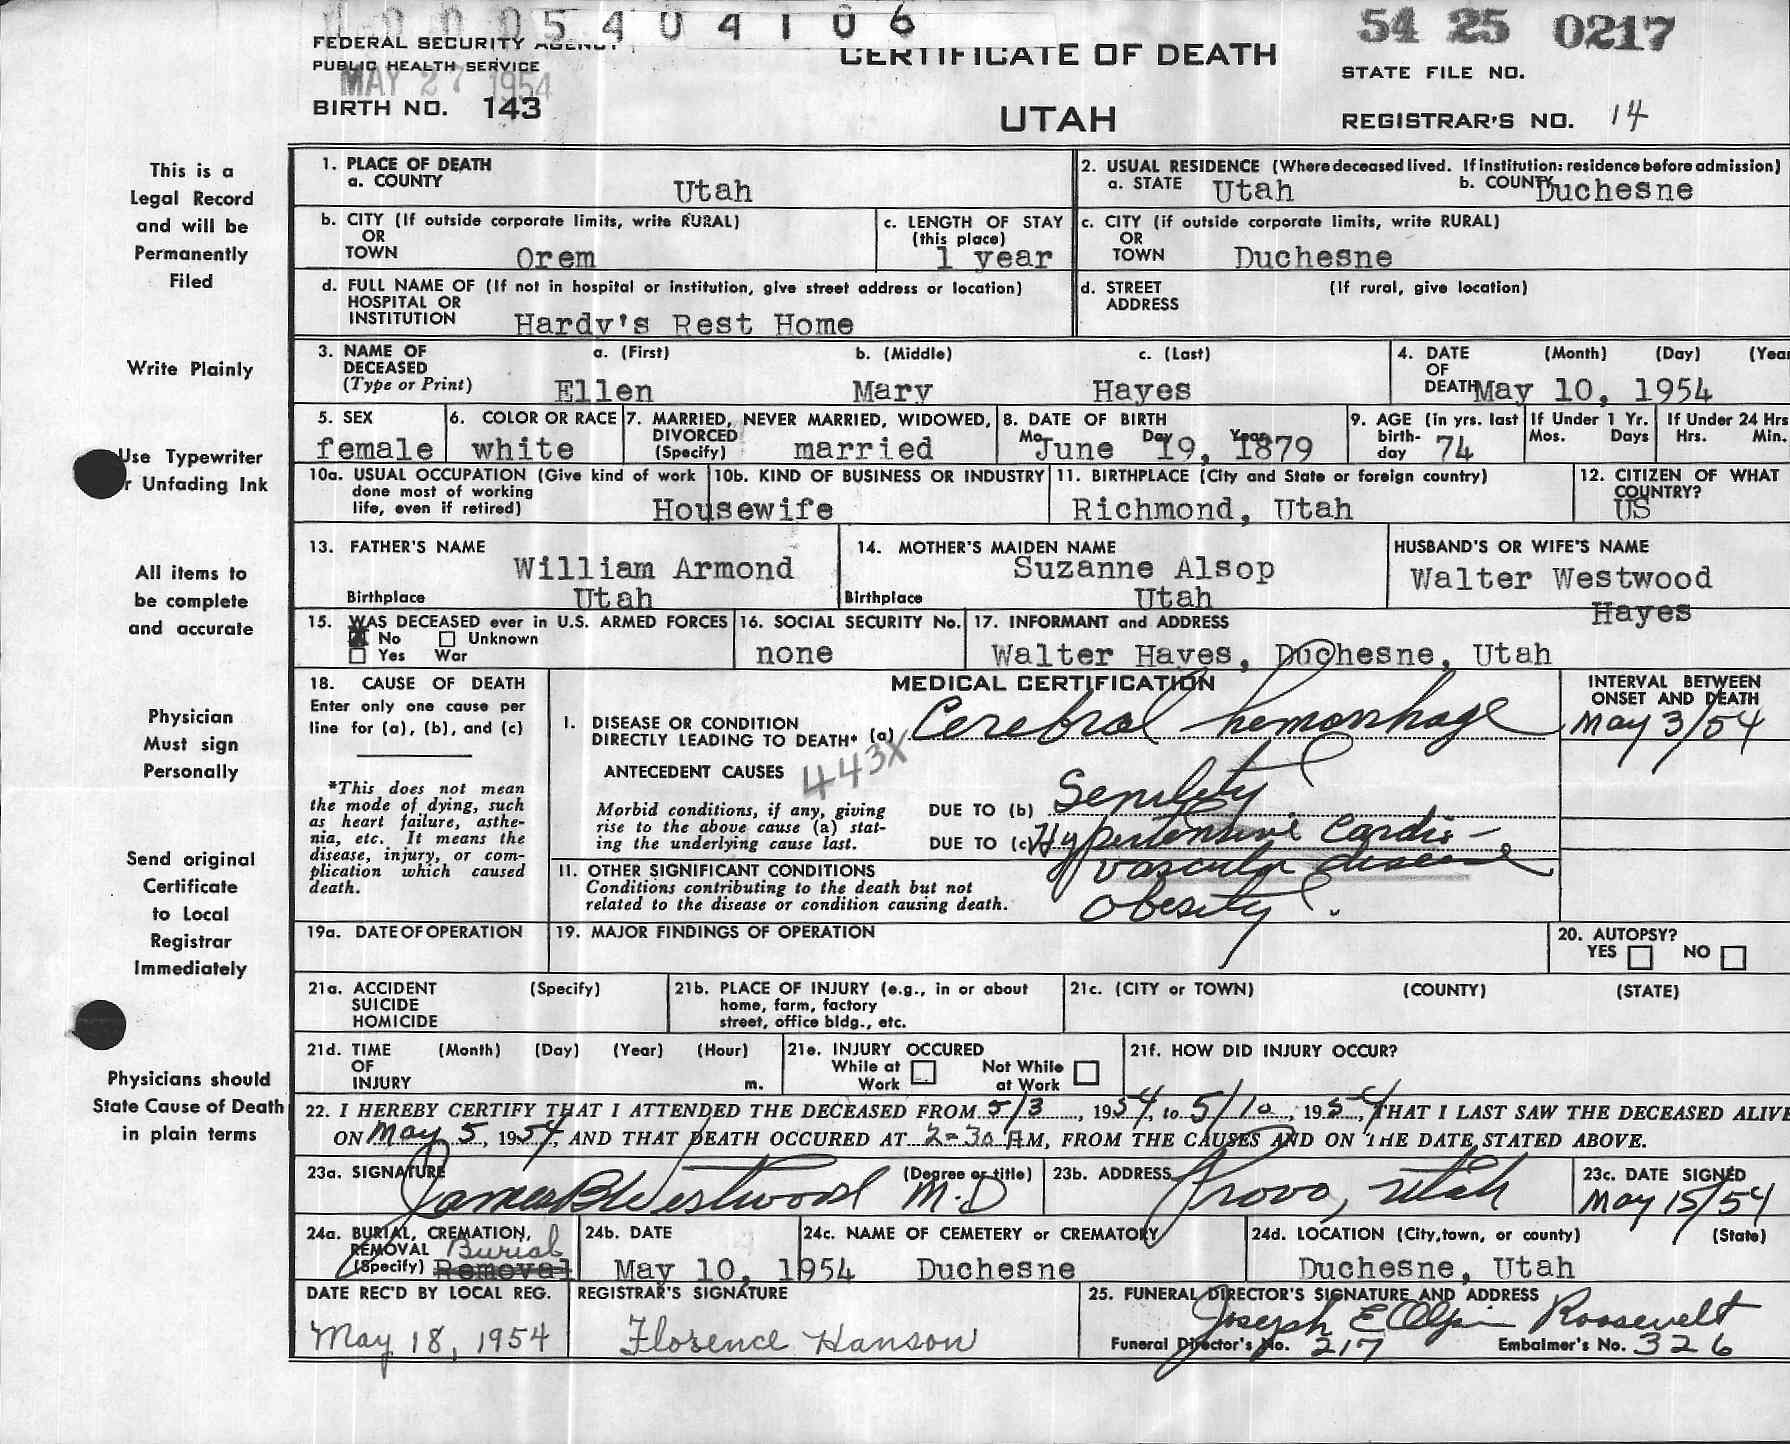 0 0 0 5 4 0 4 1 0 6
54 25 0217
FEDERAL SECURITY AGENCY
PUBLIC HEALTH SERVICE
MAY 27 1954
CERTIFICATE OF DEATH
STATE FILE NO.
BIRTH NO. 143
UTAH
REGISTRAR'S NO. 14
This is a
Legal Record
and will be
Permanently
Filed
Write Plainly
Use Typewriter
r Unfading Ink
All items to
be complete
and accurate
Physician
Must sign
Personally
Send original
Certificate
to Local
Registrar
Immediately
Physicians should
State Cause of Death
in plain terms
1. PLACE OF DEATH
a. COUNTY Utah
2. USUAL RESIDENCE (Where deceased lived. If institution: residence before admission)
a. STATE Utah b. COUNTY Duchesne
b. CITY (If outside corporate limits, write RURAL)
OR
TOWN Orem
c. LENGTH OF STAY
(this place)
1 year
c. CITY (if outside corporate limits, write RURAL)
OR
TOWN Duchesne
d. FULL NAME OF (If not in hospital or institution, give street address or location)
HOSPITAL OR
INSTITUTION Hardy's Rest Home
d. STREET (If rural, give location)
ADDRESS
3. NAME OF DECEASED (Type or Print)
a. (First) b. (Middle) c. (Last)
Ellen Mary Hayes
4. DATE (Month) (Day) (Year
OF
DEATH May 10, 1954
5. SEX
female
6. COLOR OR RACE
white
7. MARRIED, NEVER MARRIED, WIDOWED,
DIVORCED
(Specify) married
8. DATE OF BIRTH
Mo. Day Year
June 19, 1879
9. AGE (in yrs. last
birth-
day 74
If Under 1 Yr.
Mos. Days
If Under 24 Hrs
Hrs. Min.
10a. USUAL OCCUPATION (Give kind of work
done most of working
life, even if retired) Housewife
10b. KIND OF BUSINESS OR INDUSTRY
11. BIRTHPLACE (City and State or foreign country)
Richmond, Utah
12. CITIZEN OF WHAT
COUNTRY?
US
13. FATHER'S NAME
William Armond
Birthplace Utah
14. MOTHER'S MAIDEN NAME
Suzanne Alsop
Birthplace Utah
HUSBAND'S OR WIFE'S NAME
Walter Westwood
Hayes
15. WAS DECEASED ever in U.S. ARMED FORCES
No Unknown
Yes War
16. SOCIAL SECURITY No.
none
17. INFORMANT and ADDRESS
Walter Hayes, Duchesne, Utah
18. CAUSE OF DEATH
Enter only one cause per
line for (a), (b), and (c)
*This does not mean
the mode of dying, such
as heart failure, asthe-
nia, etc. It means the
disease, injury, or com-
plication which caused
death.
MEDICAL CERTIFICATION
INTERVAL BETWEEN
ONSET AND DEATH
I. DISEASE OR CONDITION
DIRECTLY LEADING TO DEATH* (a) Cerebral hemorrhage
May 3/54
ANTECEDENT CAUSES 443X
Morbid conditions, if any, giving
rise to the above cause (a) stat-
ing the underlying cause last.
DUE TO (b) Senility
DUE TO (c) Hypertensive Cardio-
vascular disease
II. OTHER SIGNIFICANT CONDITIONS
Conditions contributing to the death but not
related to the disease or condition causing death.
Obesity
19a. DATE OF OPERATION
19. MAJOR FINDINGS OF OPERATION
20. AUTOPSY?
YES NO
21a. ACCIDENT (Specify)
SUICIDE
HOMICIDE
21b. PLACE OF INJURY (e.g., in or about
home, farm, factory
street, office bldg., etc.
21c. (CITY or TOWN) (COUNTY) (STATE)
21d. TIME (Month) (Day) (Year) (Hour)
OF
INJURY m.
21e. INJURY OCCURED
While at Work
Not While at Work
21f. HOW DID INJURY OCCUR?
22. I HEREBY CERTIFY THAT I ATTENDED THE DECEASED FROM 5/3, 1954, to 5/10, 1954, THAT I LAST SAW THE DECEASED ALIVE
ON May 5, 1954, AND THAT DEATH OCCURED AT 2-30 AM, FROM THE CAUSES AND ON THE DATE STATED ABOVE.
23a. SIGNATURE (Degree or title)
James B Westwood M.D
23b. ADDRESS
Provo, Utah
23c. DATE SIGNED
May 15/54
24a. BURIAL, CREMATION,
REMOVAL Burial
(Specify) Removal
24b. DATE
May 10, 1954
24c. NAME OF CEMETERY or CREMATORY
Duchesne
24d. LOCATION (City, town, or county) (State)
Duchesne, Utah
DATE REC'D BY LOCAL REG.
May 18, 1954
REGISTRAR'S SIGNATURE
Florence Hanson
25. FUNERAL DIRECTOR'S SIGNATURE AND ADDRESS
Joseph E Olpin Roosevelt
Funeral Director's No. 217 Embalmer's No. 326